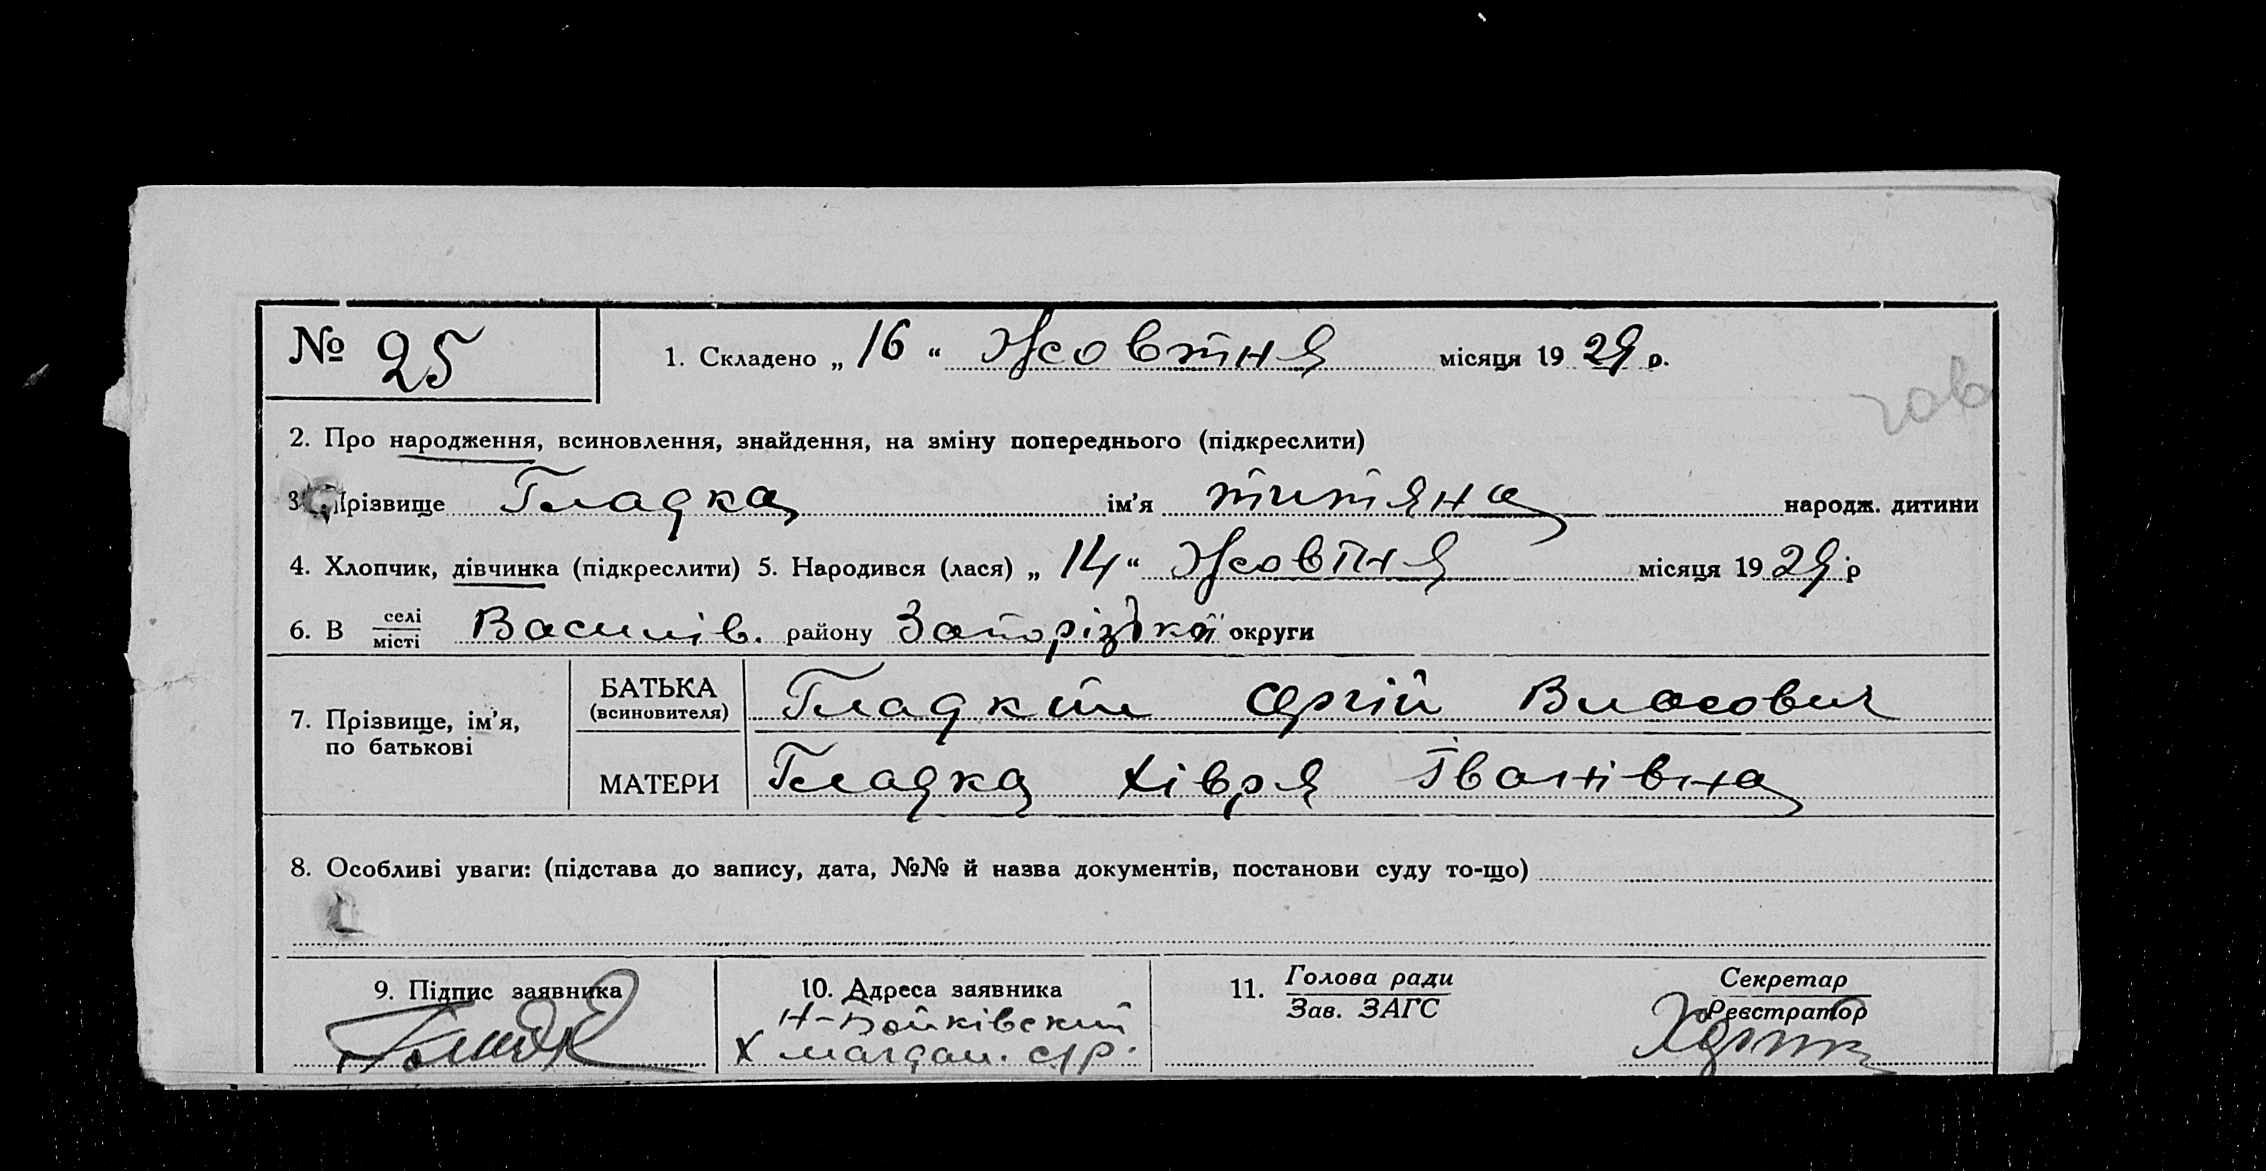 № 25
1. Складено „ 16 “ Жовтня місяця 19 29 р.
2. Про народження, всиновлення, знайдення, на зміну попереднього (підкреслити)
3. Прізвище Гладка ім’я титяна народж. дитини
4. Хлопчик, дівчинка (підкреслити) 5. Народився (лася) „ 14 “ Жовтня місяця 19 29 р
6. В селі місті Василів. району Запорізької округи
7. Прізвище, ім’я, по батькові
БАТЬКА (всиновителя) Гладкий Сергій Власович
МАТЕРИ Гладка Хівря Іванівна
8. Особливі уваги: (підстава до запису, дата, №№ й назва документів, постанови суду то-що)
9. Підпис заявника
10. Адреса заявника
Н-Бойківский
х магдал. с/р.
11. Голова ради
Зав. ЗАГС
Секретар
Реєстратор